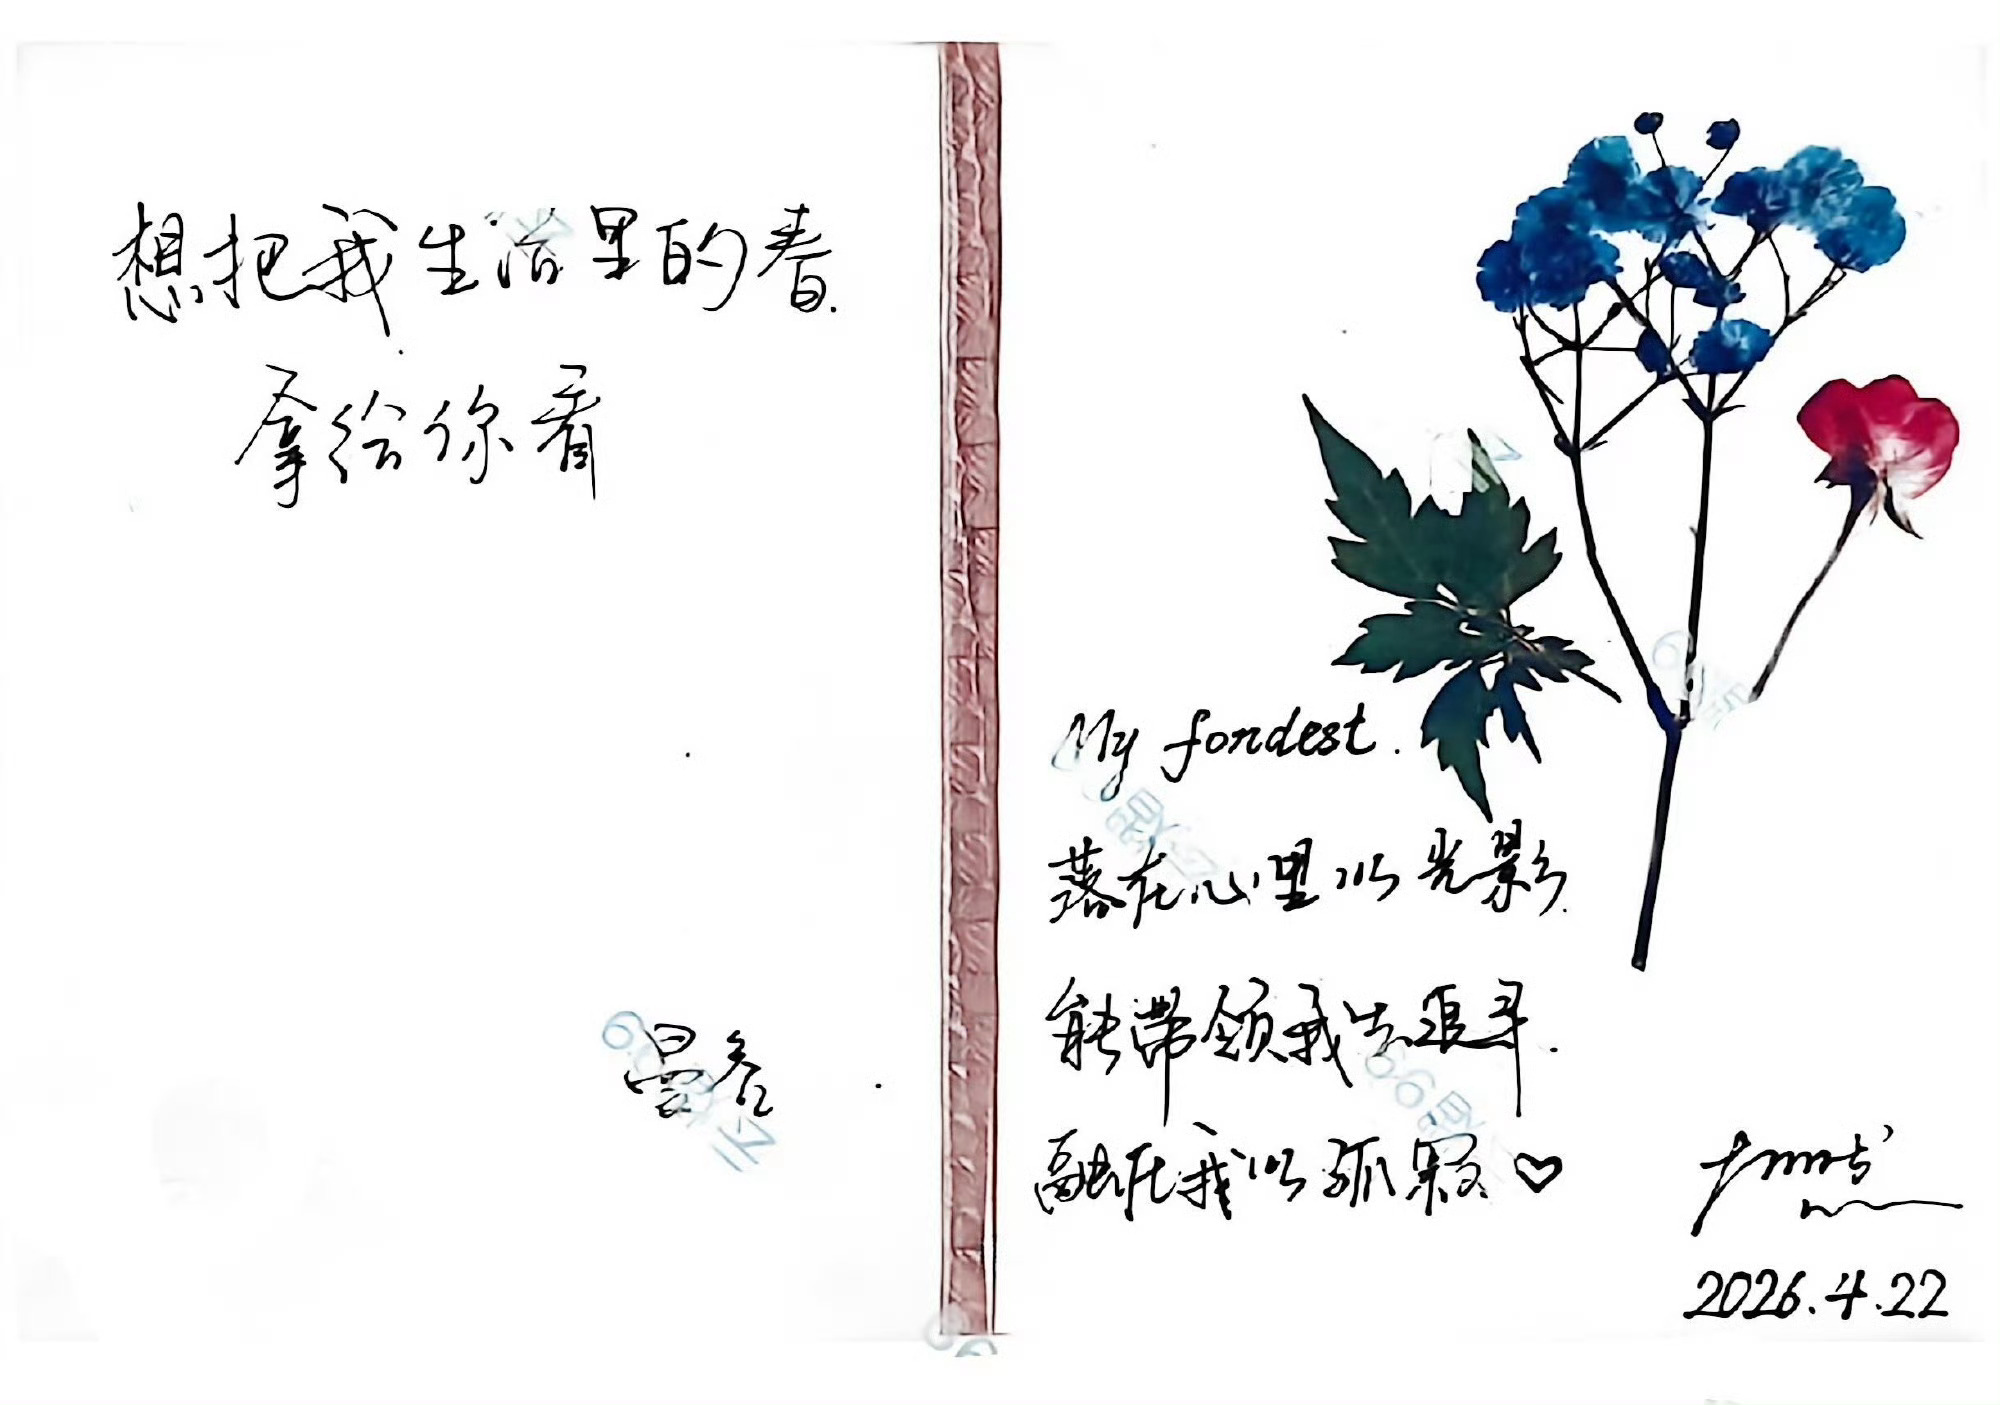 想把我生活里的春
拿给你看
昙詹
My fondest.
落在心里的光影
能带领我去追寻.
融在我的孤寂 ♡
2026.4.22